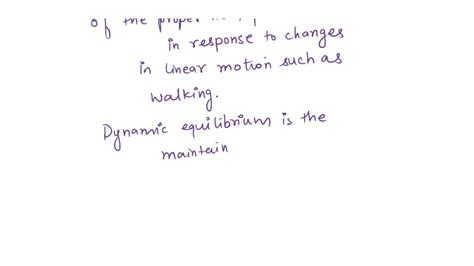 of the proper
in response to changes
in linear motion such as
walking.
Dynamic equilibrium is the
maintain